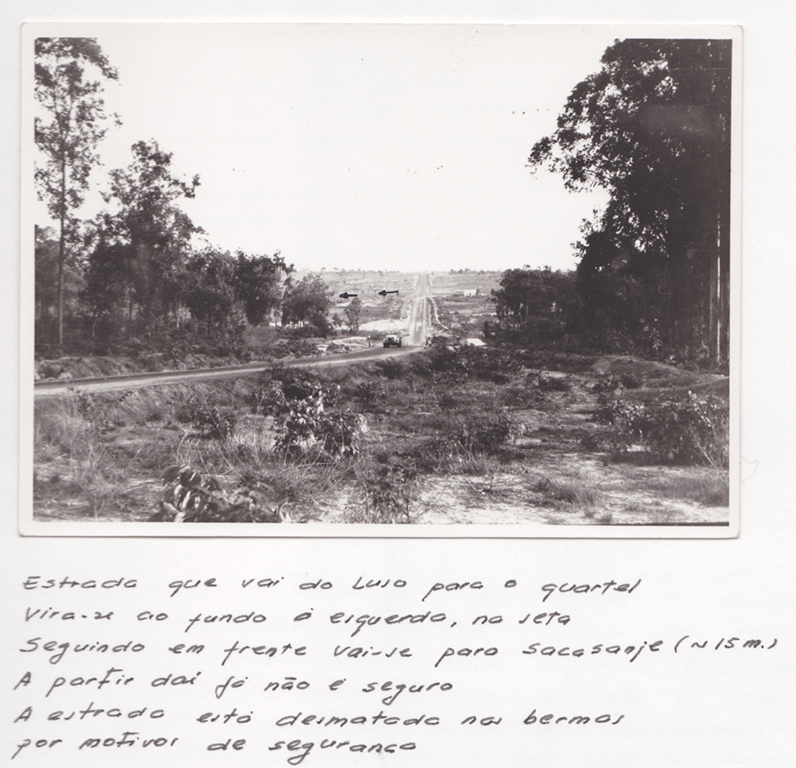 Estrada que vai do Luso para o quartel
Vira-se ao fundo à esquerda, na seta
Seguindo em frente vai-se para Sacasanje (~15m.)
A partir daí já não é seguro
A estrada está desmatada nas bermas
por motivos de segurança